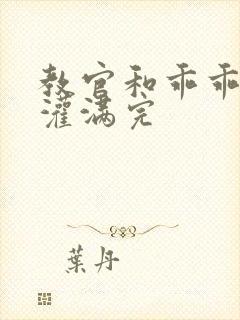 教官和乖乖
灌满完
葉丹